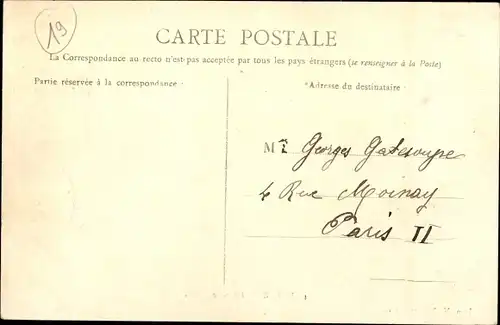 19
CARTE POSTALE
La Correspondance au recto n'est pas acceptée par tous les pays étrangers (se renseigner à la Poste)
Partie réservée à la correspondance
Adresse du destinataire
Mr Georges Gatesoupe
4 Rue Moinay
Paris II